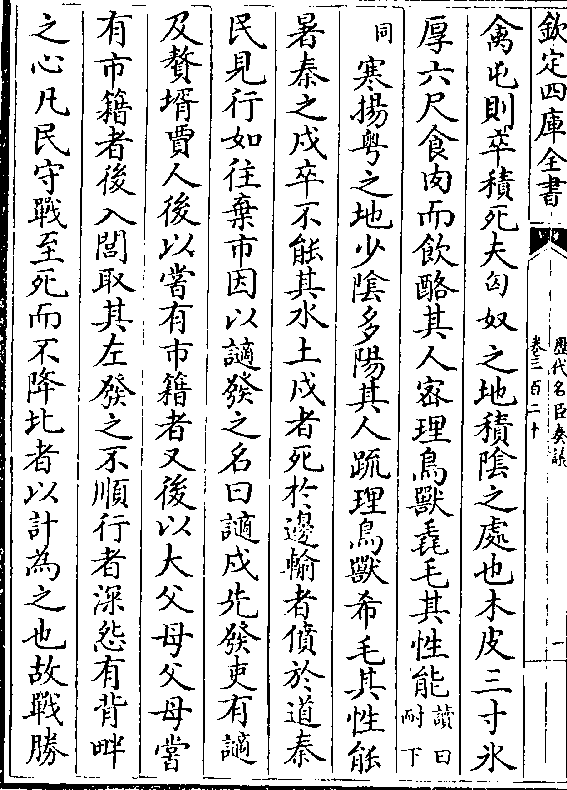 欽定四庫全書
歴代名臣奏議
卷三百二十
一
禽屯則卒積死夫匈奴之地積陰之處也木皮三寸冰
厚六尺食肉而飲酪其人密理鳥獸毳毛其性能讀曰耐下
同寒揚粤之地少陰多陽其人䟽理鳥獸希毛其性能
暑秦之戍卒不能其水土戍者死於邊輸者僨於道秦
民見行如往棄市因以讁發之名曰讁戍先發吏有讁
及贅壻賈人後以嘗有市籍者又後以大父母父母嘗
有市籍者後入閭取其左發之不順行者深怨有背畔
之心凡民守戰至死而不降北者以計為之也故戰勝